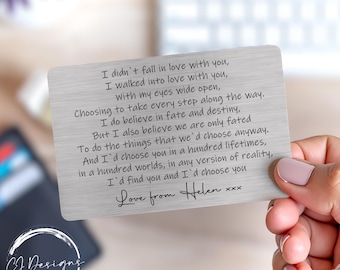 I didn`t fall in love with you,
I walked into love with you,
with my eyes wide open,
Choosing to take every step along the way.
I do believe in fate and destiny,
But I also believe we are only fated
To do the things that we`d choose anyway.
And I`d choose you in a hundred lifetimes,
in a hundred worlds, in any version of reality,
I`d find you and I`d choose you
Love from Helen xxx
CJ Designs